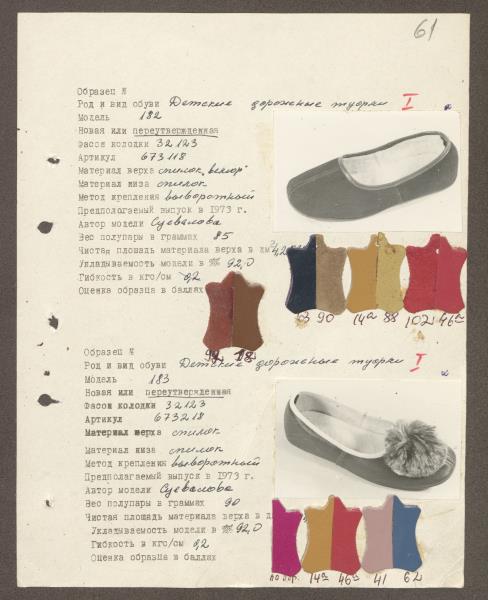 61
Образец №
Род и вид обуви Детские дорожные туфли I
Модель 182
Новая или переутвержденная
Фасон колодки 32123
Артикул 673118
Материал верха спилок "велюр"
Материал низа спилок
Метод крепления выворотный
Предполагаемый выпуск в 1973 г.
Автор модели Суевалова
Вес полупары в граммах 85
Чистая площадь материала верха в дм²
Укладываемость модели в % 92,0
Гибкость в кгс/см 0,2
Оценка образца в баллах
90 14а 88 102 46а
Образец №
Род и вид обуви Детские дорожные туфли I
Модель 183
Новая или переутвержденная
Фасон колодки 32123
Артикул 673218
Материал верха спилок
Материал низа спилок
Метод крепления выворотный
Предполагаемый выпуск в 1973 г.
Автор модели Суевалова
Вес полупары в граммах 90
Чистая площадь материала верха в
Укладываемость модели в % 92,0
Гибкость в кгс/см 0,2
Оценка образца в баллах
14а 46а 41 62